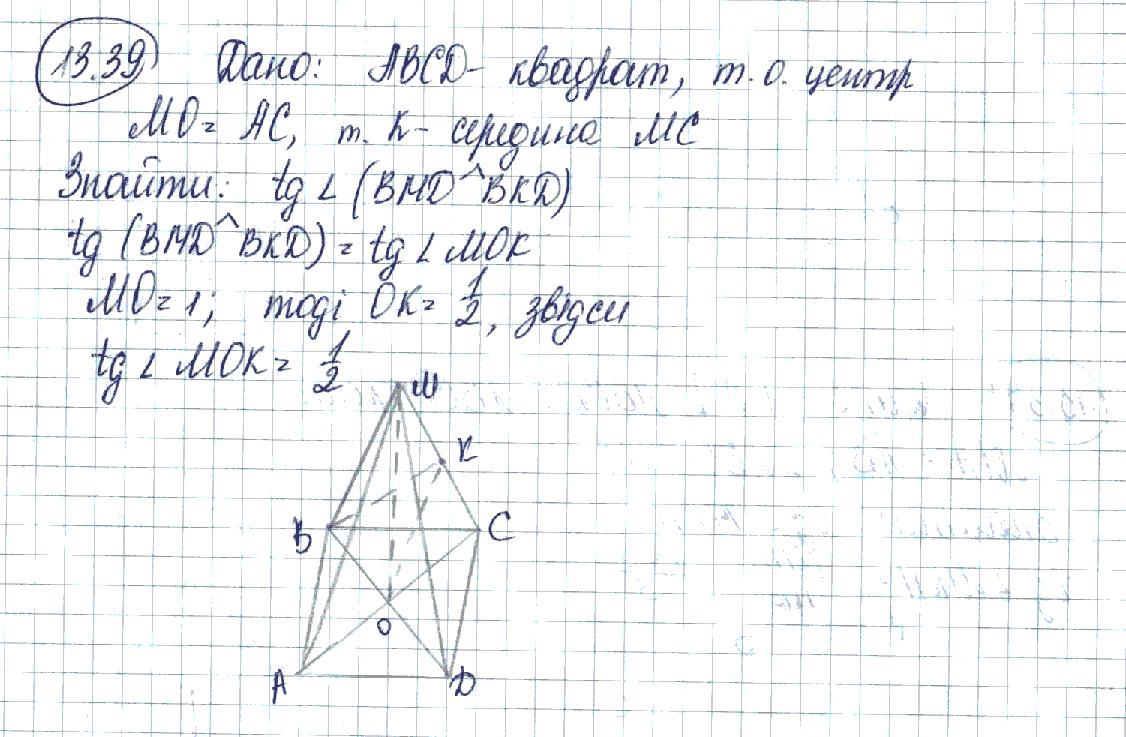 13.39 Дано: ABCD - квадрат, т. О. центр
MO = AC, т. K - середина MC
Знайти: tg ∠ (BMD ^ BKD)
tg (BMD ^ BKD) = tg ∠ MOK
MO = 1; тоді OK = 1/2, звідси
tg ∠ MOK = 1/2
M
K
B
C
O
A
D